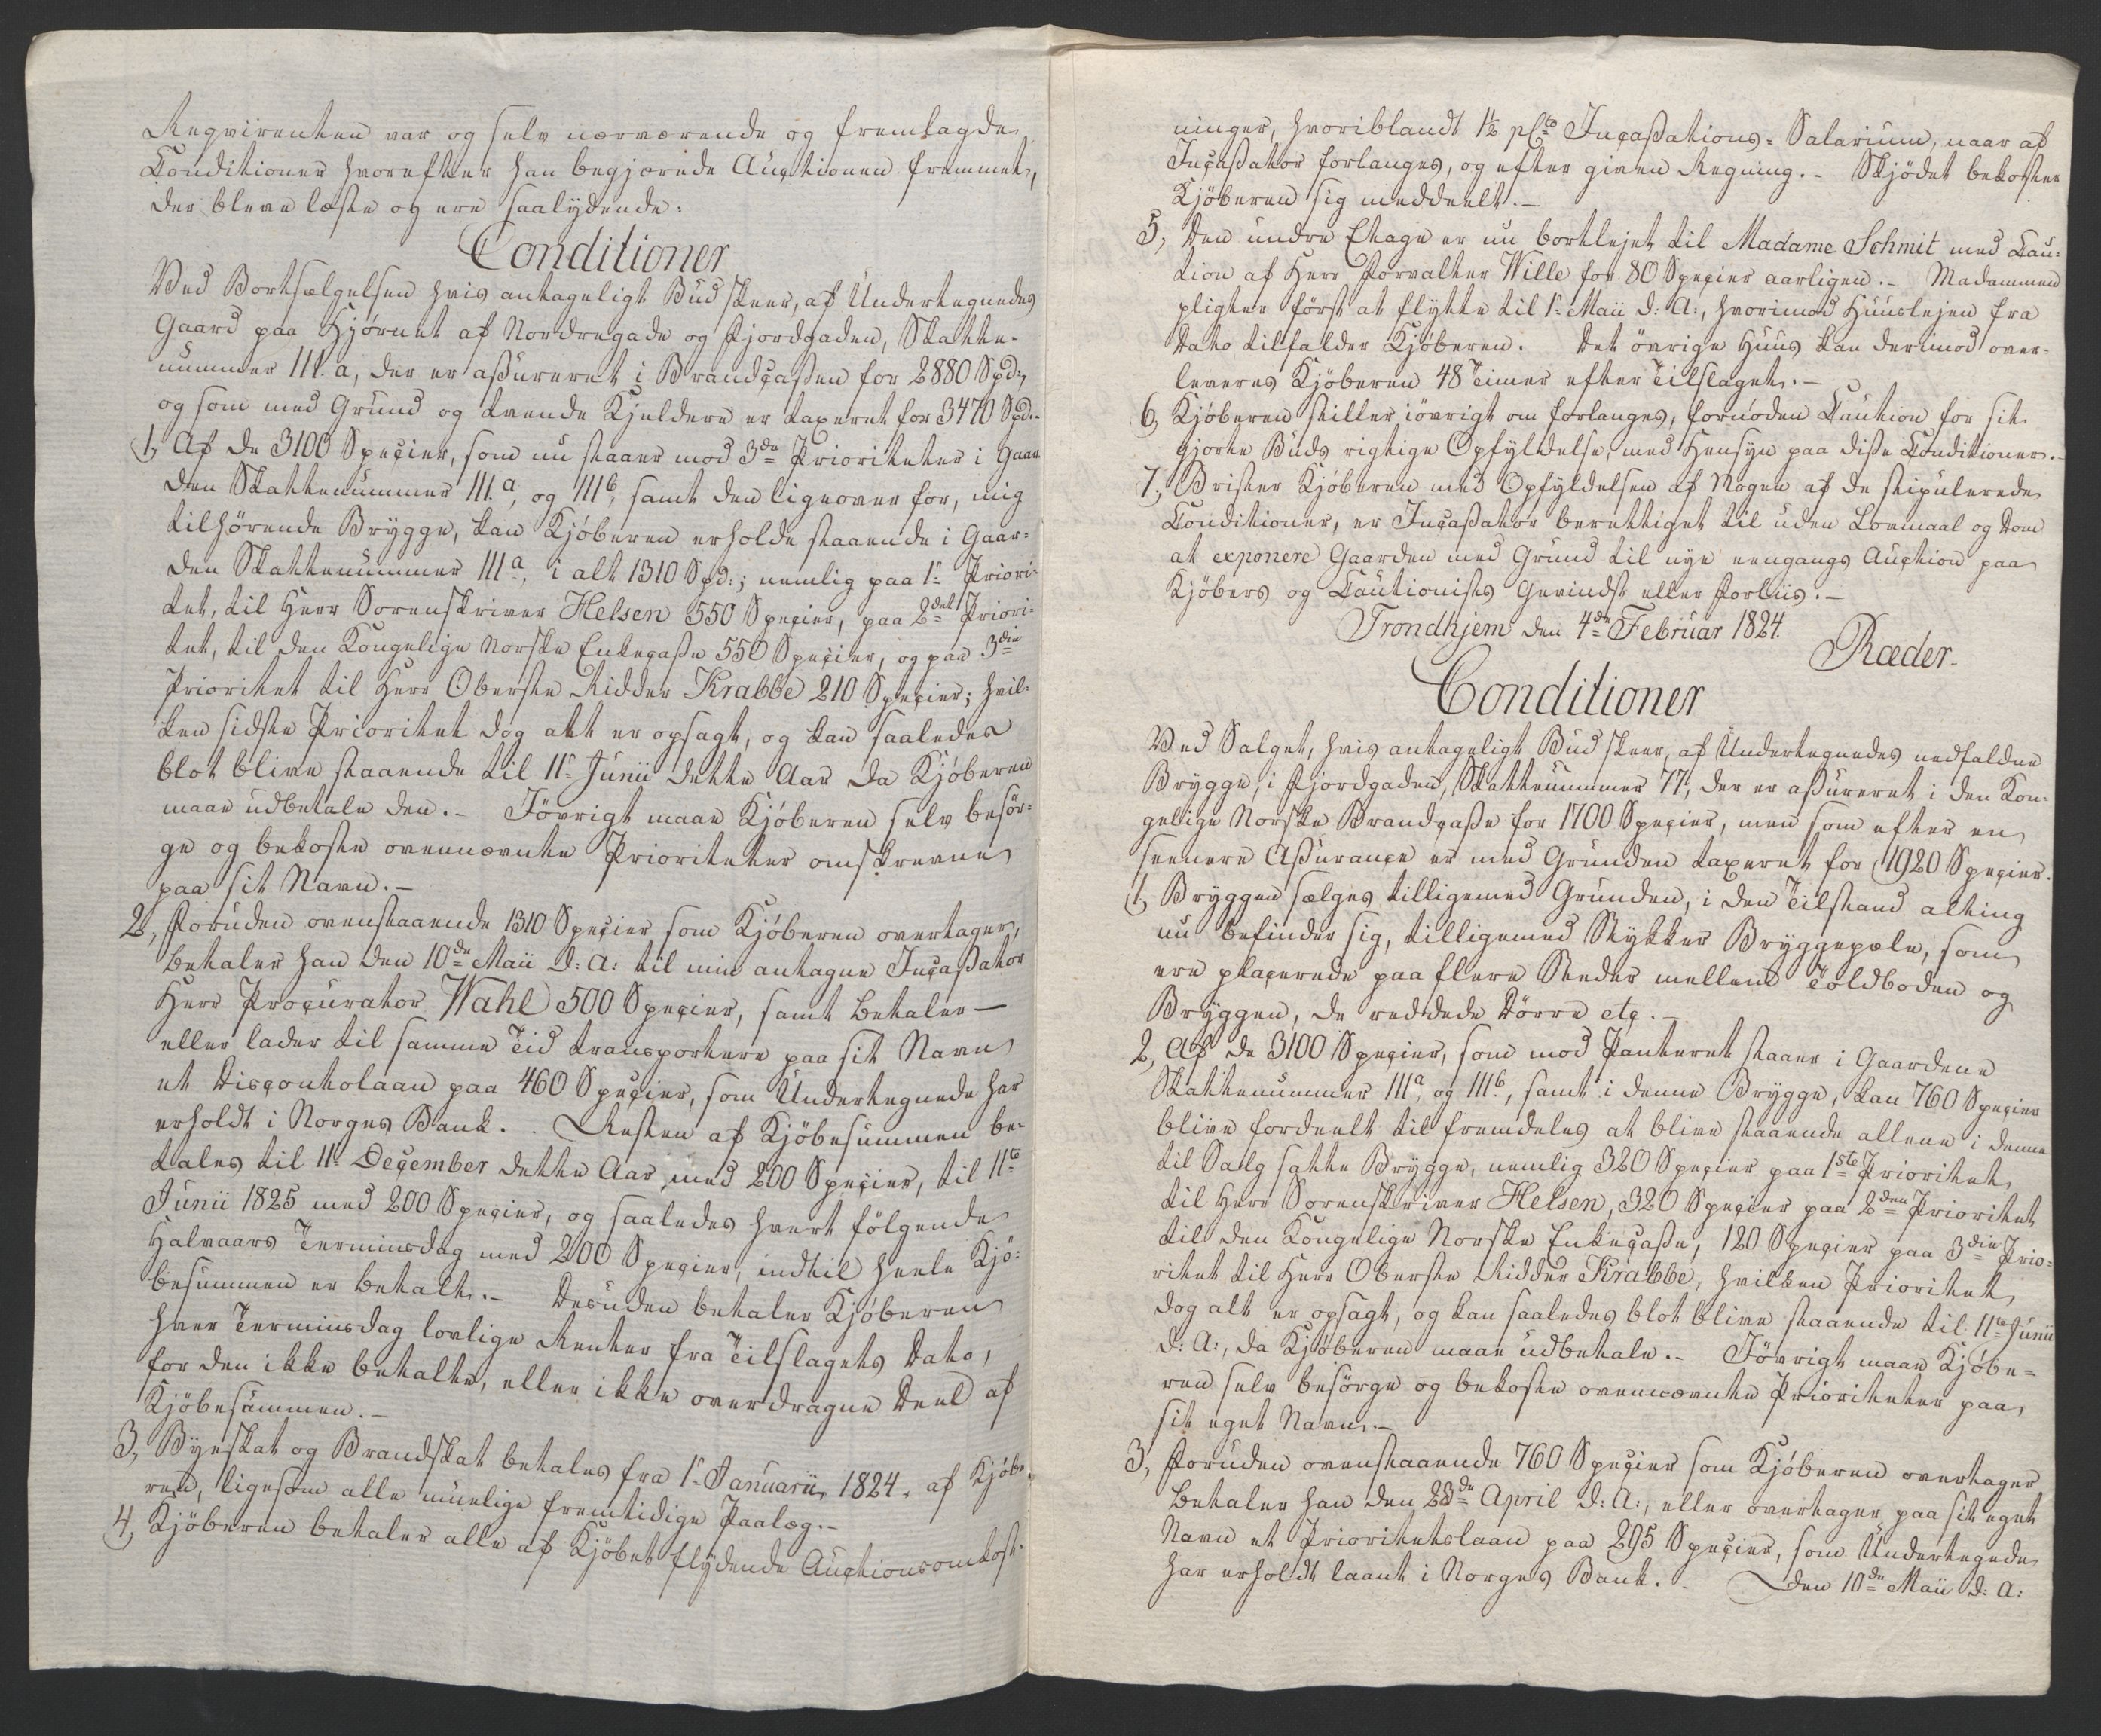 Reqvirenten var og selv nærværende og fremlagde
Conditioner hvorefter han begjærede Auctionen fremmet,
der bleve læste og ere saalydende:
Conditioner
Ved Bortsælgelsen hvis antageligt Bud skeer, af Undertegnedes
Gaard paa Hjørnet af Nordregade og Fjordgaden, Skatte-
nummer 111.a, der er assureret i Brandcassen for 2880 Spd:,
og som med Grund og tvende Kjeldere er taxeret for 3470 Spd:-
1, Af de 3100 Specier, som nu staaer mod 3de Prioriteter i Gaar-
den Skattenummer 111.a, og 111b, samt den ligeover for, mig
tilhørende Brygge, kan Kjøberen erholde staaende i Gaar-
den Skattenummer 111a, i alt 1310 Spd:; nemlig paa 1e Priori-
tet, til Herr Sorenskriver Helsen 550 Specier, paa 2det Priori-
tet, til den Kongelige Norske Enkecasse 550 Specier, og paa 3die
Prioritet til Herr Oberste Ridder Krabbe 210 Specier; hvil-
ken sidste Prioritet dog alt er opsagt, og kan saaledes
blot blive staaende til 11e Junii dette Aar da Kjøberen
maae udbetale den.- Iøvrigt maae Kjøberen selv besør-
ge og bekoste ovennævnte Prioriteter omskrevne
paa sit Navn.-
2, Foruden ovenstaaende 1310 Specier som Kjøberen overtager,
betaler han den 10de Maii d: A: til min antagne Incassator
Herr Procurator Wahl 500 Specier, samt betaler -
eller lader til samme Tid transportere paa sit Navn
et Discontolaan paa 460 Specier, som Undertegnede har
erholdt i Norges Bank. - Resten af Kjøbesummen be-
tales til 11e December dette Aar med 200 Specier, til 11te
Junii 1825 med 200 Specier, og saaledes hvert følgende
Halvaars Terminsdag med 200 Specier, indtil heele Kjø-
besummen er betalt.- Desuden betaler Kjøberen
hver Terminsdag lovlige Renter fra Tilslagets Dato,
for den ikke betalte, eller ikke overdragne Deel af
Kjøbesummen.-
3, Byeskat og Brandskat betales fra 1e Januarii 1824. af Kjøbe-
ren, ligesom alle muelige fremtidige Paalæg.-
4, Kjøberen betaler alle af Kjøbet flydende Auctionsomkost-
ninger, hvoriblandt 1½ pCto Incassations-Salarium, naar af
Incassator forlanges, og efter given Regning.- Skjødet bekoster
Kjøberen sig meddeelt.-
5, Den undre Etage er nu bortlejet til Madame Schmit med Cau-
tion af Herr Forvalter Wille for 80 Specier aarligen.- Madammen
pligter først at flytte til 1e Maii d: A:, hvorimod Huuslejen fra
Dato tilfalder Kjøberen. Det øvrige Huus kan derimod over-
leveres Kjøberen 48 Timer efter Tilslaget.-
6, Kjøberen stiller iøvrigt om forlanges, fornøden Caution for sit
gjorte Buds rigtige Opfyldelse, med Hensyn paa disse Conditioner.-
7, Brister Kjøberen med Opfyldelsen af Nogen af de stipulerede
Conditioner, er Incassator berettiget til uden Lovmaal og Dom
at exponere Gaarden med Grund til nye eengangs Auction paa
Kjøbers og Cautionists Gevindst eller Forliis.-
Trondhjem den 4de Februar 1824.
Ræder.
Conditioner
Ved Salget, hvis antageligt Bud skeer, af Undertegnedes nedfaldne
Brygge, i Fjordgaden, Skattenummer 77, der er assureret i den Kon-
gelige Norske Brandcasse for 1700 Specier, men som efter en
seenere Assurance er med Grunden taxeret for 1920 Specier.
1, Bryggen sælges tilligemed Grunden, i den Tilstand alting
nu befinder sig, tilligemed Stykker Bryggepæle, som
ere placerede paa flere Steder mellem Toldboden og
Bryggen, de reddede Dørre etc.-
2, Af de 3100 Specier, som mod Panteret staaer i Gaardene
Skattenummer 111a, og 111b, samt i denne Brygge, kan 760 Specier
blive fordeelt til fremdeles at blive staaende allene i denne
til Salg satte Brygge, nemlig 320 Specier paa 1ste Prioritet
til Herr Sorenskriver Helsen, 320 Specier paa 2den Prioritet
til den Kongelige Norske Enkecasse, 120 Specier paa 3die Prio-
ritet til Herr Oberste Ridder Krabbe, hvilken Prioritet
dog alt er opsagt, og kan saaledes blot blive staaende til 11te Junii
d: A:, da Kjøberen maae udbetale.- Iøvrigt maae Kjøbe-
ren selv besørge og bekoste ovennævnte Prioriteter paa
sit eget Navn.-
3, Foruden ovenstaaende 760 Specier som Kjøberen overtager
betaler han den 28de April d: A:, eller overtager paa sit eget
Navn et Prioritetslaan paa 295 Specier, som Undertegnede
har erholdt laant i Norges Bank.- Den 10de Maii d: A: